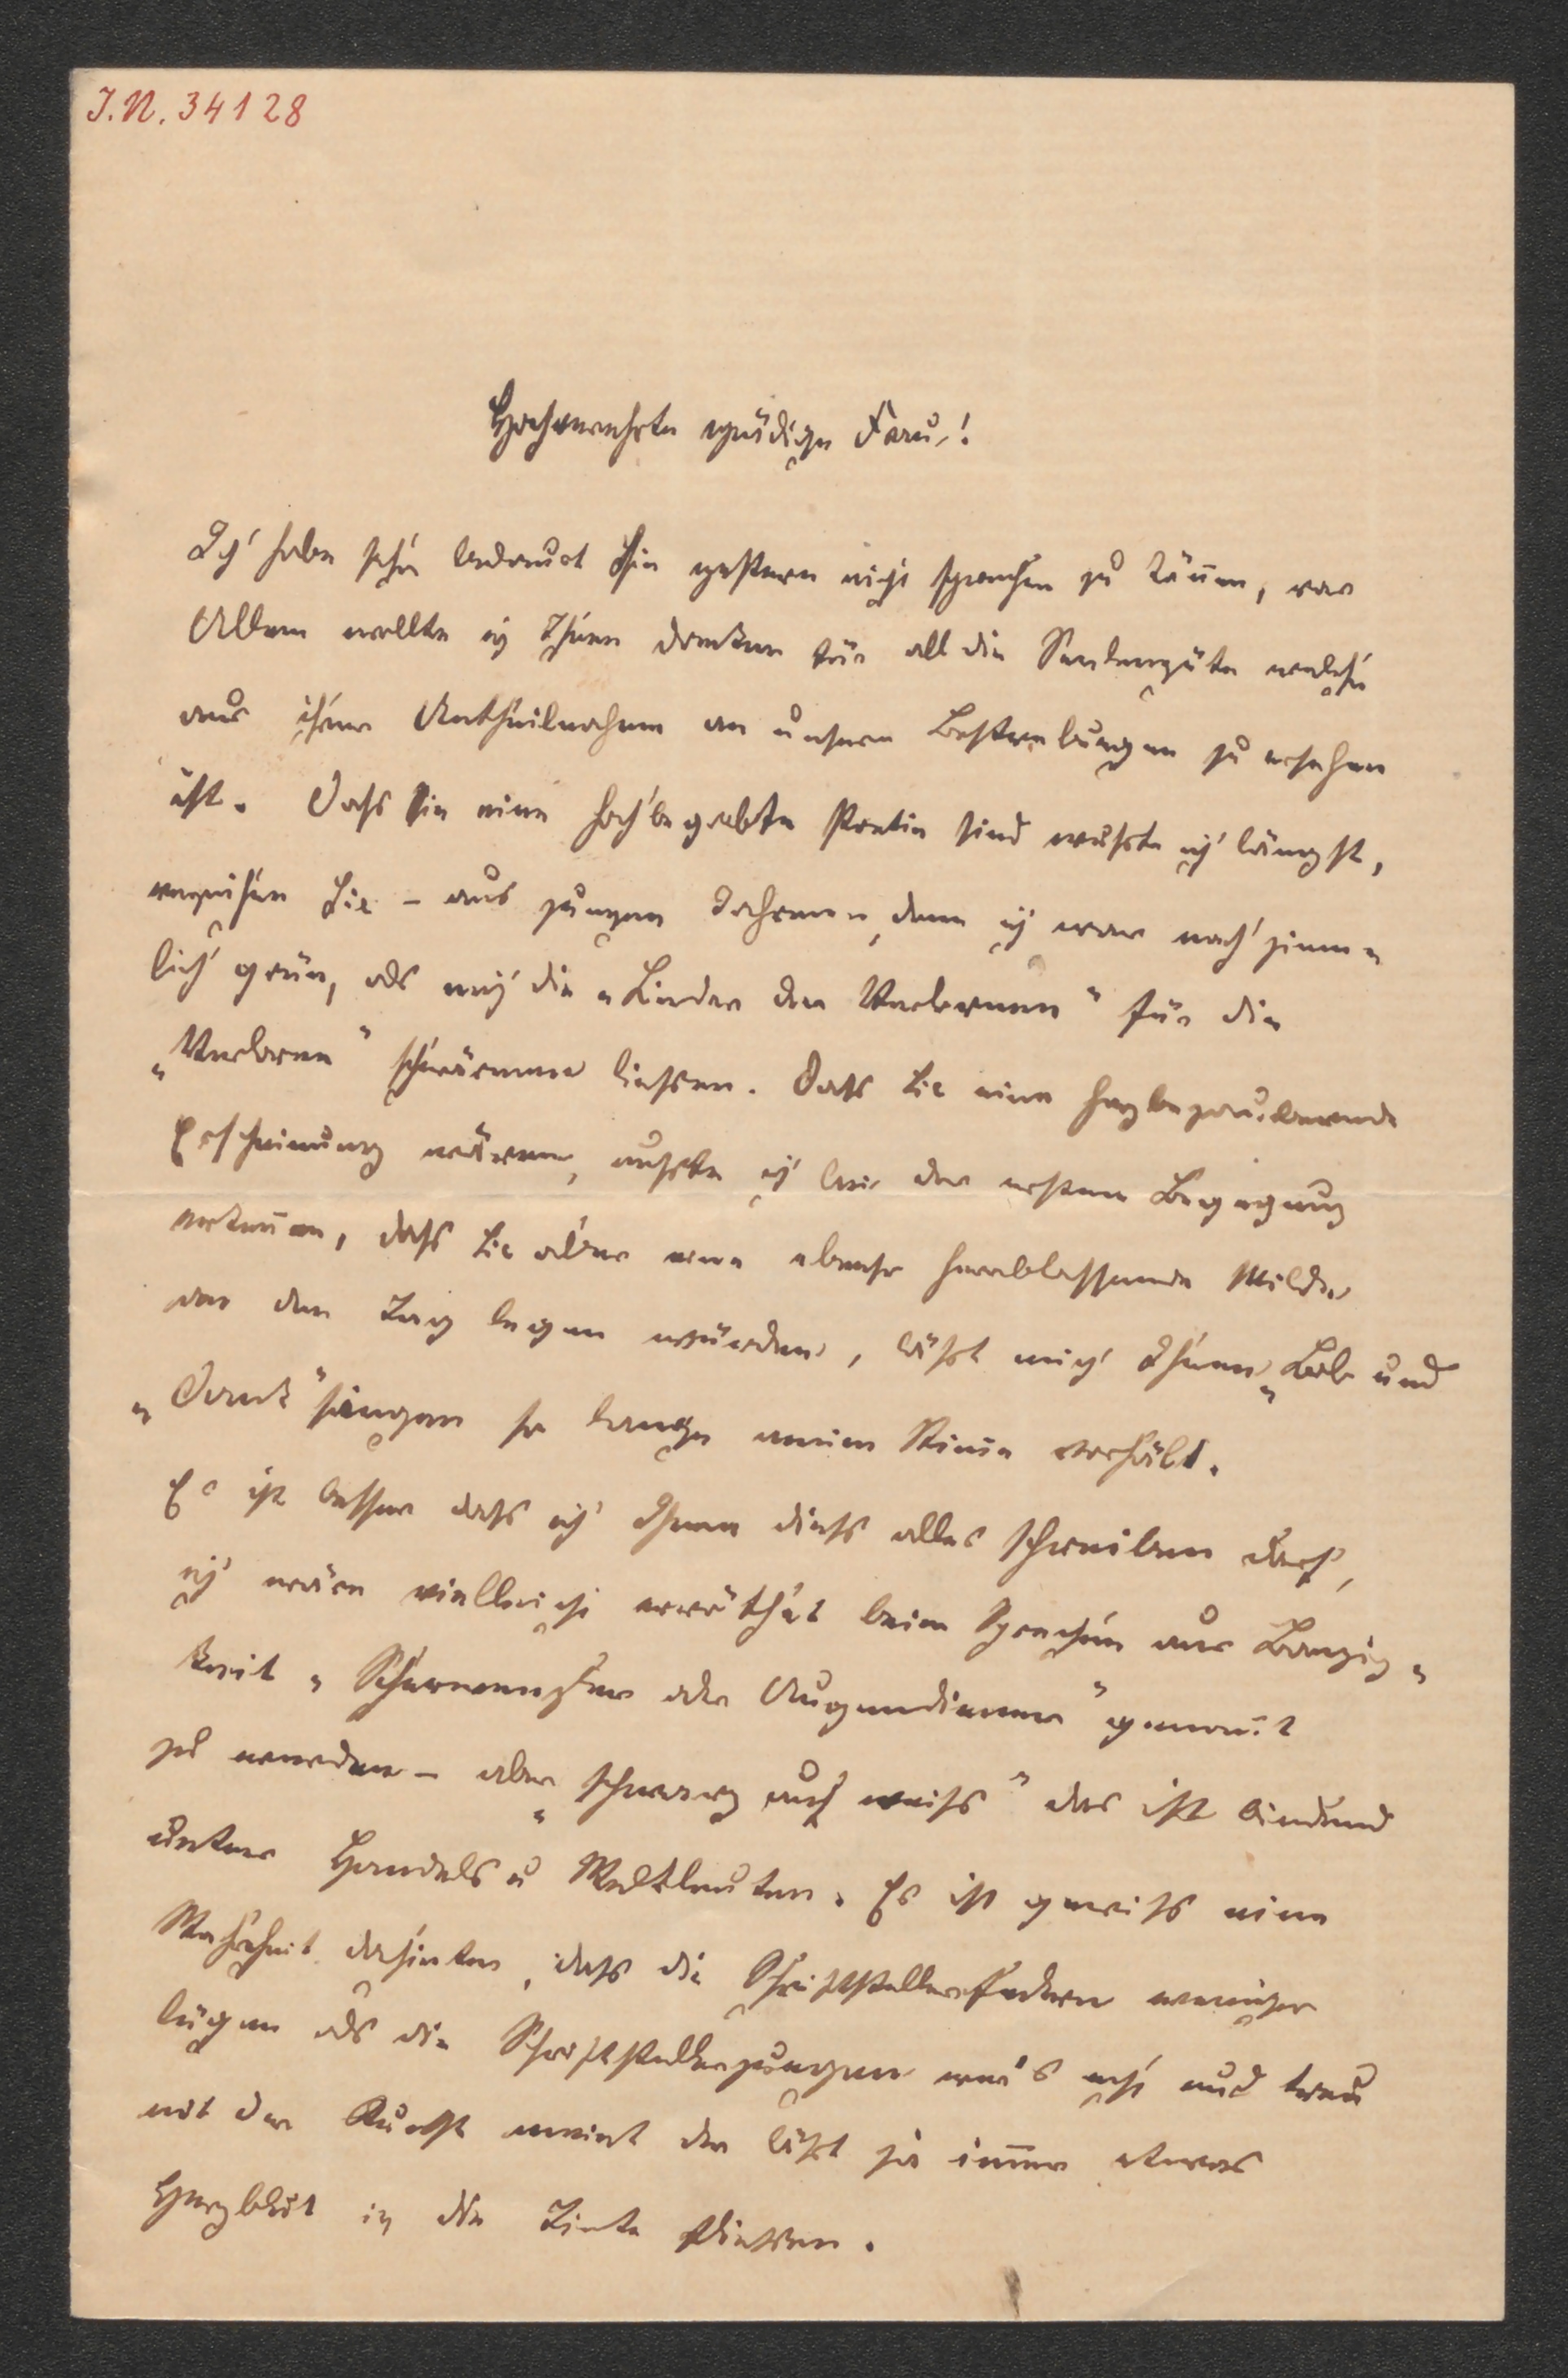 I.N. 34128
Hochverehrte gnädige Frau!
Ich habe sehr bedauert Sie gestern nicht sprechen zu können, vor
Allem wollte ich Ihnen danken für all die Seelengüte welche
aus ihrer Antheilnahme an unseren Bestrebungen zu ersehen
ist. Dass Sie eine hochbegabte Poetin sind wusste ich längst,
verzeihen Sie – aus jungen Jahren, denn ich war noch ziem-
lich grün, als mich die „Lieder der Verlorenen" für die
„Verlorene" schwärmen liessen. Dass Sie eine herzbezaubernde
Erscheinung wären, musste ich bei der ersten Begegnung
erkennen, dass Sie aber eine ebenso herablassende Milde
an den Tag legen würden, lässt mich Ihnen „Lob und
„Dank" singen so lange meine Stimme vorhält.
Es ist besser dass ich Ihnen diess alles schreiben darf,
ich wäre vielleicht verräthet beim Sprechen aus Bangig-
keit „Scharwenzler oder Augendiener" genannt
zu werden – aber „schwarz auf weiss" das ist bindend
unter Handels u Weltleuten. Es ist gewiss eine
Wahrheit dahinter, dass die Schriftstellerfedern weniger
lügen als die Schriftstellerzungen wer's echt und treu
mit der Kunst meint der lässt ja immer etwas
Herzblut in die Tinte fliessen.